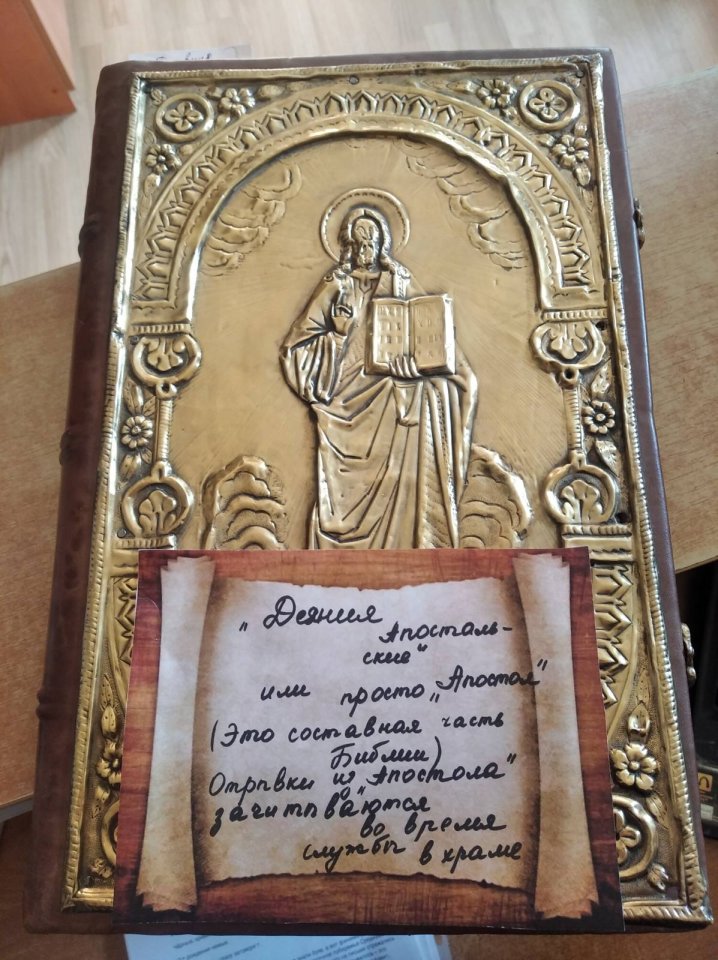 „Деяния
Апосталь-
ские"
или просто „Апостол"
(Это составная часть
Библии)
Отрывки из „Апостола"
зачитываются
во время
службы в храме